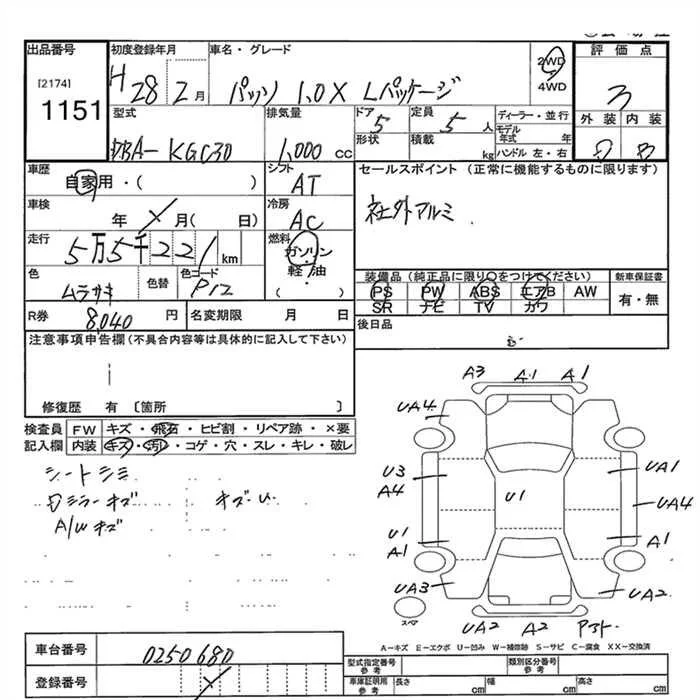 出品番号 初度登録年月 車名・グレード 評価点
[2174] 1151 H 28 2月 パッソ 1.0X Lパッケージ 2WD ・ 4WD 3
外装 内装
型式 排気量 ドア 定員 ディーラー・並行
DBA- KGC30 1,000 cc 5 5人 モデル年式 年
形状 積載 kg ハンドル 左・右
車歴 シフト セールスポイント (正常に機能するものに限ります)
自家用・( ) AT 社外アルミ
車検 冷房
年 月( 日) AC
走行 燃料
5万5千221km ガソリン
軽・油
( )
色 色替 色コード 装備品(純正品に限り○をつけてください) 新車保証書
ムラサキ P12 PS PW ABS エアB AW 有・無
SR ナビ TV カワ
R券 8,040円 名変期限 月 日 後日品
注意事項申告欄(不具合内容等は具体的に記入して下さい)
修復歴 有 〔箇所 〕
検査員 FW キズ・飛石・ヒビ割・リペア跡・×要
記入欄 内装 キズ・汚レ・コゲ・穴・スレ・キレ・破レ
シートシミ
ミラーキズ キズU
A/Wキズ
A3 A1 A1
UA4
U3 A4 U1 UA1
UA4
U1 A1 A1
UA3 UA2
スペア
UA2 A2
A−キズ E−エクボ U−凹み W−補修跡 S−サビ C−腐食 XX−交換済
車台番号 0250680
登録番号
型式指定番号 参考 類別区分番号 参考
車庫証明用 参考 長さ cm 幅 cm 高さ cm